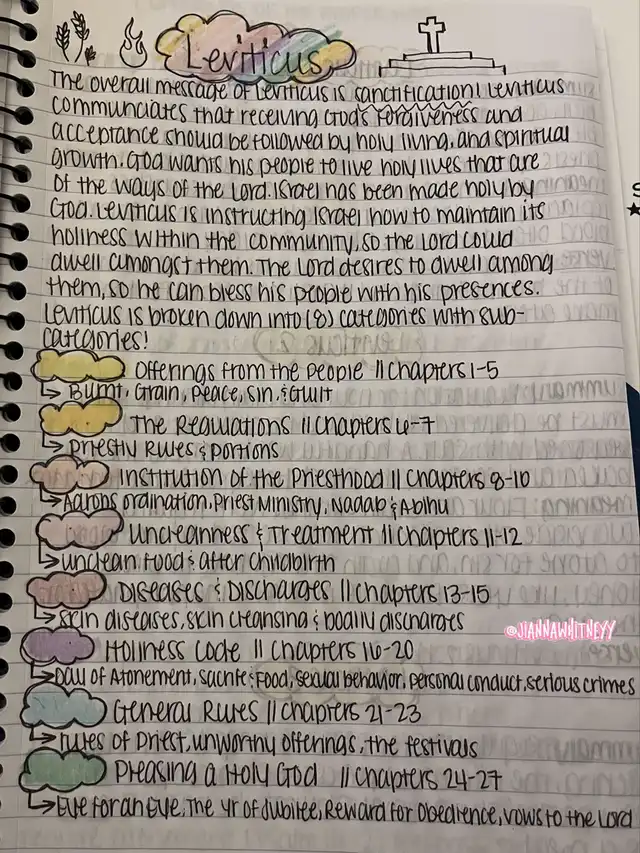 Leviticus
The overall message of Leviticus is sanctification! Leviticus
communciates that receiving God's forgiveness and
acceptance should be followed by holy living, and spiritual
growth. God wants his people to live holy lives that are
of the ways of the Lord. Israel has been made holy by
God. Leviticus is instructing Israel how to maintain its
holiness within the community, so the Lord could
dwell amongst them. The Lord desires to dwell among
them, so he can bless his people with his presences.
Leviticus is broken down into (8) categories with sub-
categories!
Offerings from the People || Chapters 1-5
↳ Burnt, Grain, Peace, Sin, & Guilt
The Regulations || Chapters 6-7
↳ Priestly Rules & portions
Institution of the Priesthood || Chapters 8-10
↳ Aarons ordination, Priest Ministry, Nadab & Abihu
Uncleanness & Treatment || Chapters 11-12
↳ unclean Food & after childbirth
Diseases & Discharges || Chapters 13-15
↳ skin diseases, skin cleansing & bodily discharges
Holiness Code || Chapters 16-20
↳ Day of Atonement, Sacrife & Food, sexual behavior, personal conduct, serious crimes
@JIANNAWHITNEYY
General Rules || Chapters 21-23
↳ rules of Priest, unworthy offerings, the festivals
Pleasing a Holy God || Chapters 24-27
↳ Eye for an Eye, The yr of Jubilee, Reward for Obedience, vows to the Lord